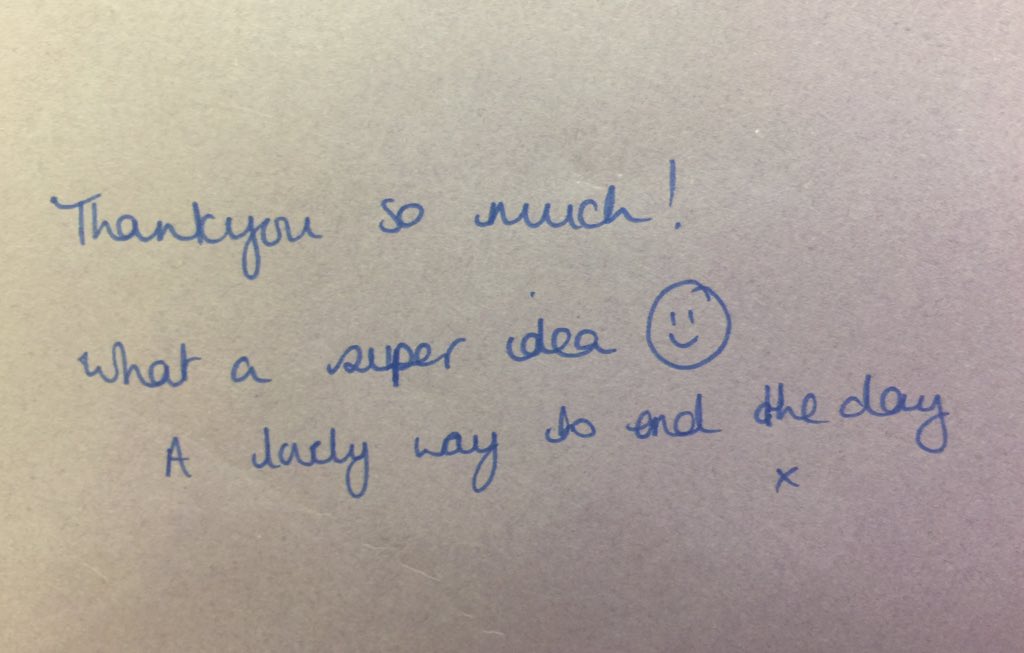 Thankyou so much!
What a super idea ☺
A lovely way to end the day
x